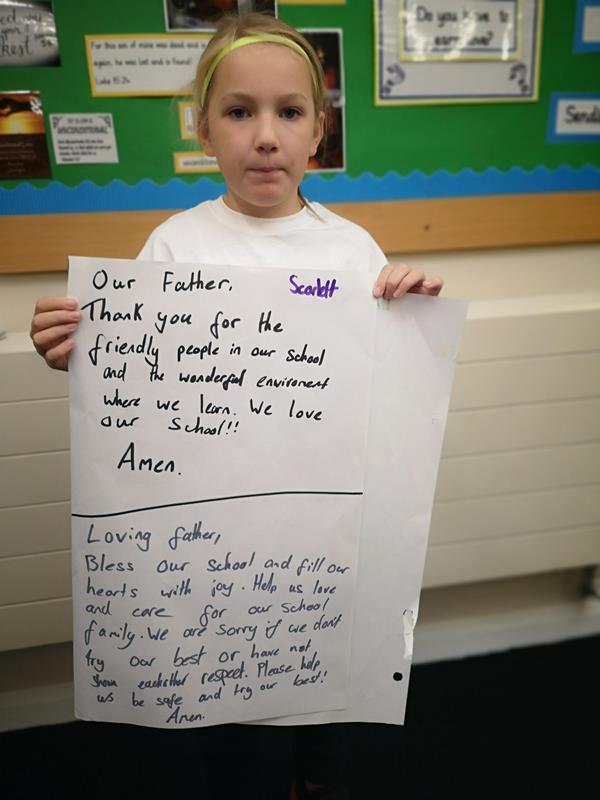 Do you have to
earn love?
For this son of mine was dead and is
again, he was lost and is found!
Luke 15:24
UNCONDITIONAL
Sendi
Our Father,
Scarlett
Thank you for the
friendly people in our school
and the wonderful enviroment
where we learn. We love
our School!!
Amen.
Loving father,
Bless our school and fill our
hearts with joy. Help us love
and care for our school
family. We are sorry if we don't
try our best or have not
shown eachother respect. Please help
us be safe and try our best!
Amen.